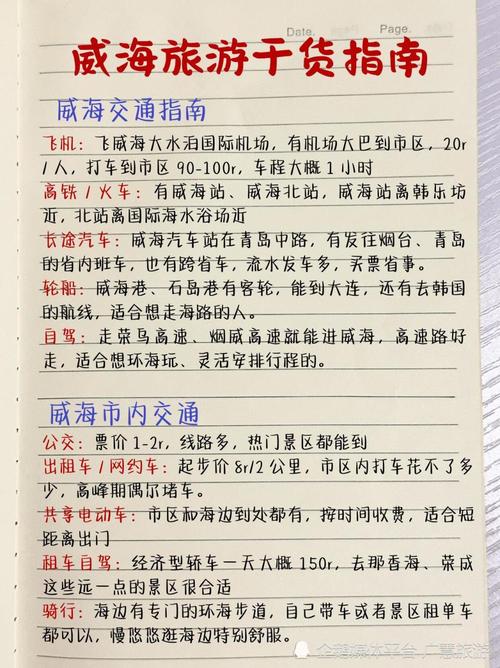 Date. Page.
威海旅游干货指南
威海交通指南
飞机：飞威海大水泊国际机场，有机场大巴到市区，20r
/人，打车到市区90-100r，车程大概1小时
高铁/火车：有威海站、威海北站，威海站离韩乐坊
近，北站离国际海水浴场近
长途汽车：威海汽车站在青岛中路，有发往烟台、青岛
的省内班车，也有跨省车，流水发车多，买票省事。
轮船：威海港、石岛港有客轮，能到大连，还有去韩国
的航线，适合想走海路的人。
自驾：走荣乌高速、烟威高速就能进威海，高速路好
走，适合想环海玩、灵活安排行程的。
威海市内交通
公交：票价1-2r，线路多，热门景区都能到
出租车/网约车：起步价8r/2公里，市区内打车花不了多
少，高峰期偶尔堵车。
共享电动车：市区和海边到处都有，按时间收费，适合短
距离出门
租车自驾：经济型轿车一天大概150r，去那香海、荣成
这些远一点的景区很合适
骑行：海边有专门的环海步道，自己带车或者景区租单车
都可以，慢悠悠逛海边特别舒服。
企鹅媒体平台 广慧旅游